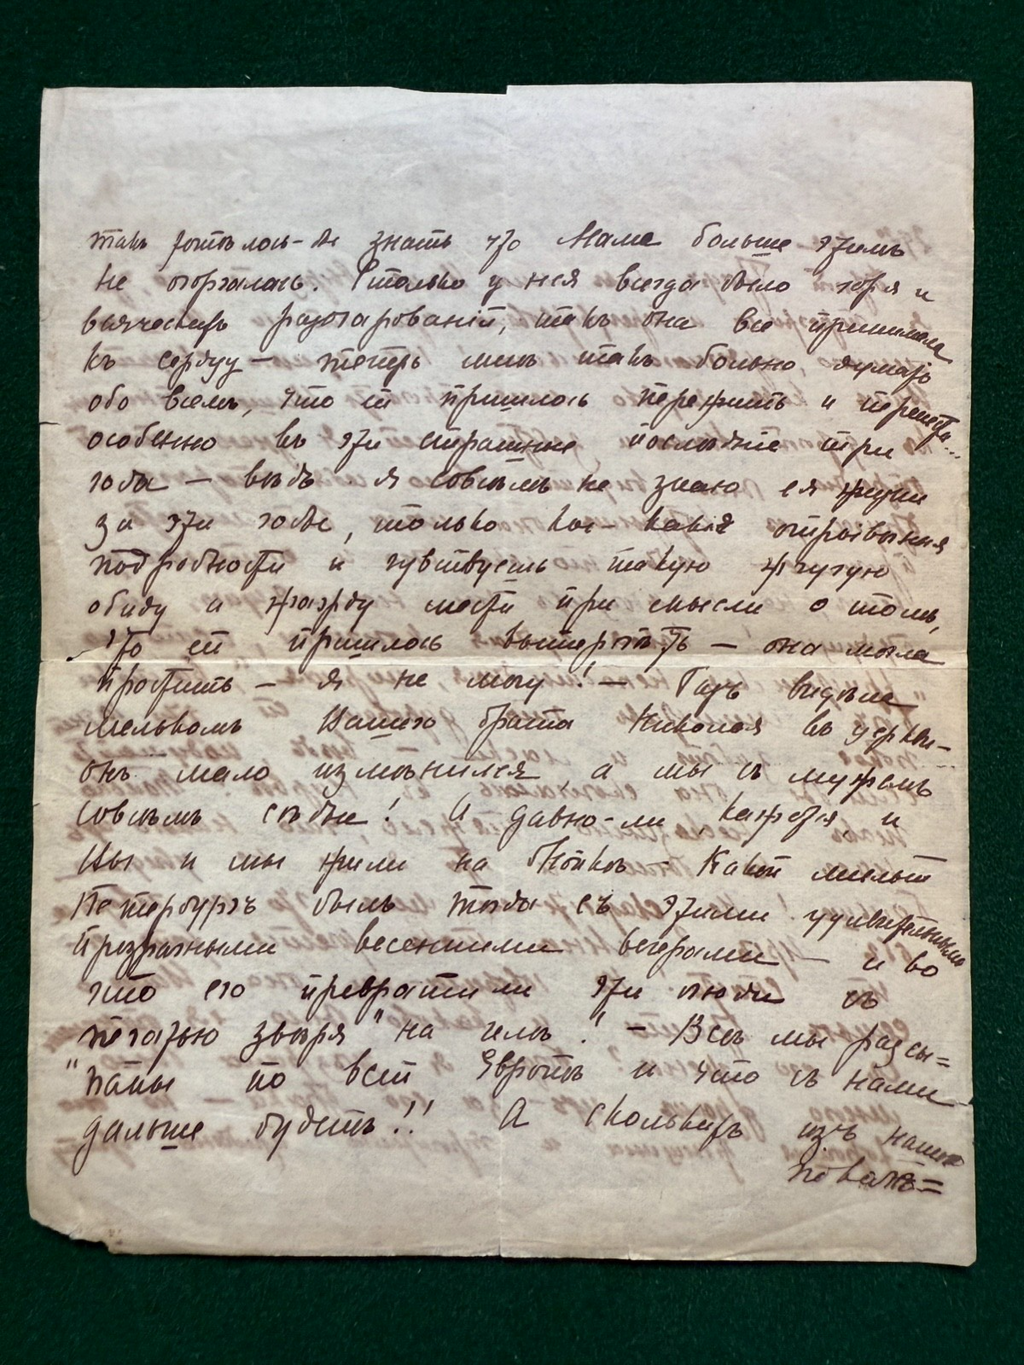 такъ хотѣлось-бы знать что Мама больше этимъ
не огорчалась. Столько у нея всегда было горя и
всяческихъ разочарованій, такъ она все принимала
къ сердцу — теперь мнѣ такъ больно, думать
обо всемъ, что ей пришлось пережить и
особенно въ эти страшные послѣдніе три
года — вѣдь я совсѣмъ не знаю ея жизни
за эти годы, только кое-какія отрывочныя
подробности и чувствуешь такую жгучую
обиду и жажду мести при мысли о томъ,
что ей пришлось вытерпѣть — она могла
простить — я не могу! —  видѣла
мелькомъ Вашего брата Николая въ церкви —
онъ мало измѣнился, а мы съ мужемъ
совсѣмъ сѣдые! А давно-ли, кажется, и
Вы и мы жили на  Какой милый
Петербургъ былъ тогда съ этими удивительными
прозрачными весенними вечерами — и во
что его превратили эти люди съ
печатью звѣря "на челѣ". — Всѣ мы разсы=
"паны по всей Европѣ и что съ нами
дальше будетъ!! А сколькихъ изъ нашихъ